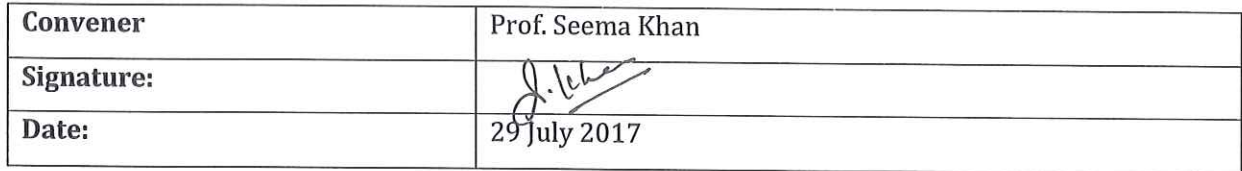 Convener Prof. Seema Khan
Signature:
Date: 29 July 2017